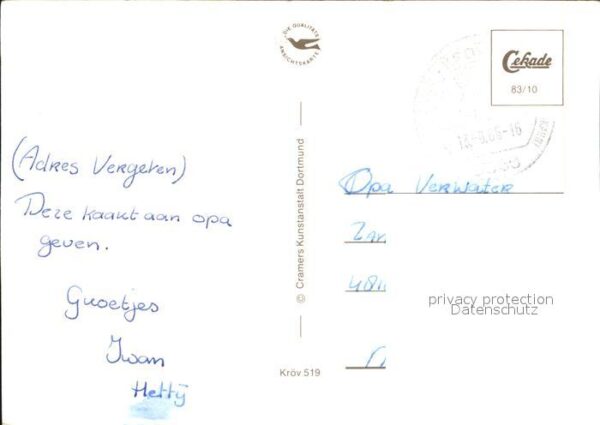 DIE QUALITÄTS
ANSICHTSKARTE
Cekade
83/10
(Adres Vergeten)
Deze kaart aan opa
geven.
Groetjes
Iwan
Hetty
© Cramers Kunstanstalt Dortmund
Kröv 519
Opa Verwater
privacy protection
Datenschutz